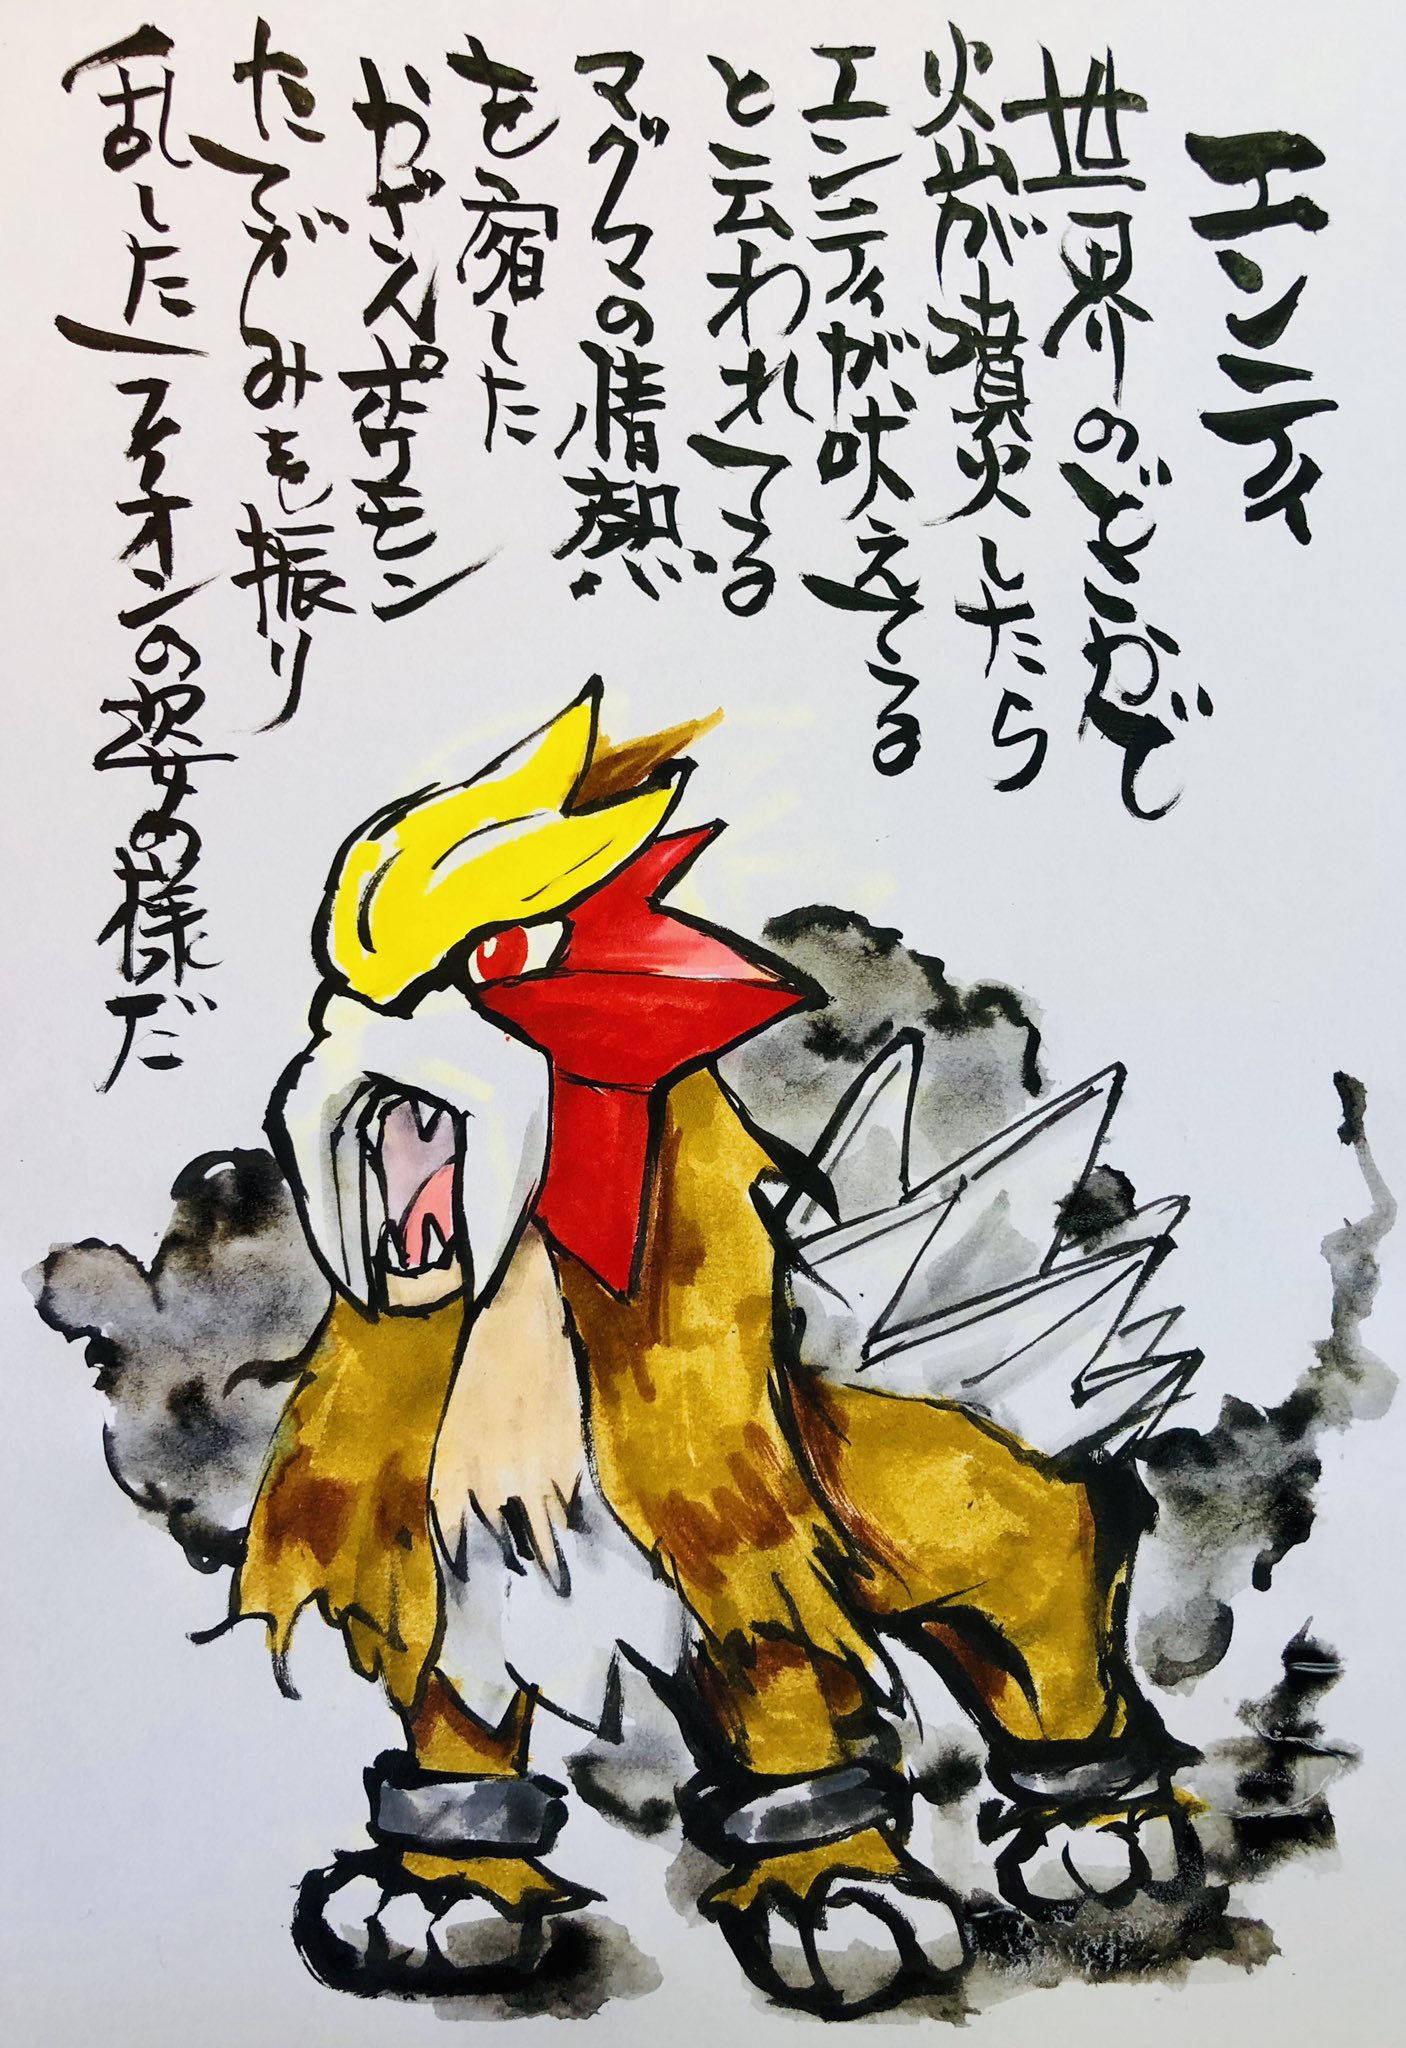 エンティ
世界のどこかで
火山が噴火したら
エンティが吠えてる
と云われてる
マグマの情熱
を宿した
かざんポケモン
たてがみを振り
乱したライオンの姿の様だ